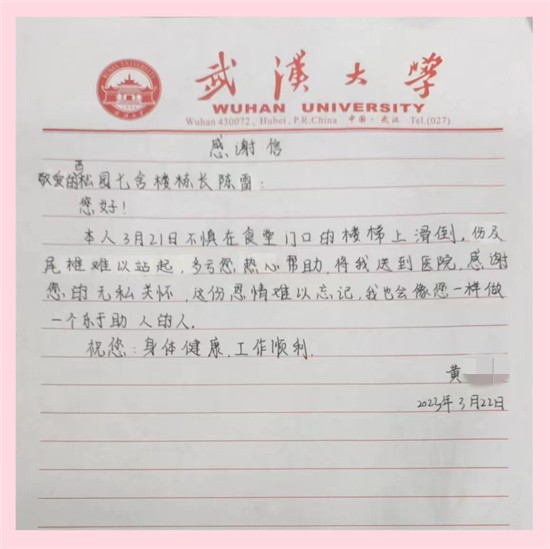 武漢大學
WUHAN UNIVERSITY
Wuhan 430072, Hubei, P.R.China 中国·武汉 Tel.(027)
感谢信
敬爱的西松园七舍楼栋长陈雷:
您好!
本人3月21日不惧在食堂门口的楼梯上滑倒,伤及
尾椎难以站起,多亏您热心帮助,将我送到医院,感谢
您的无私关怀,这份恩情难以忘记,我也会像您一样做
一个乐于助人的人.
祝您:身体健康,工作顺利.
黄
2023年3月22日